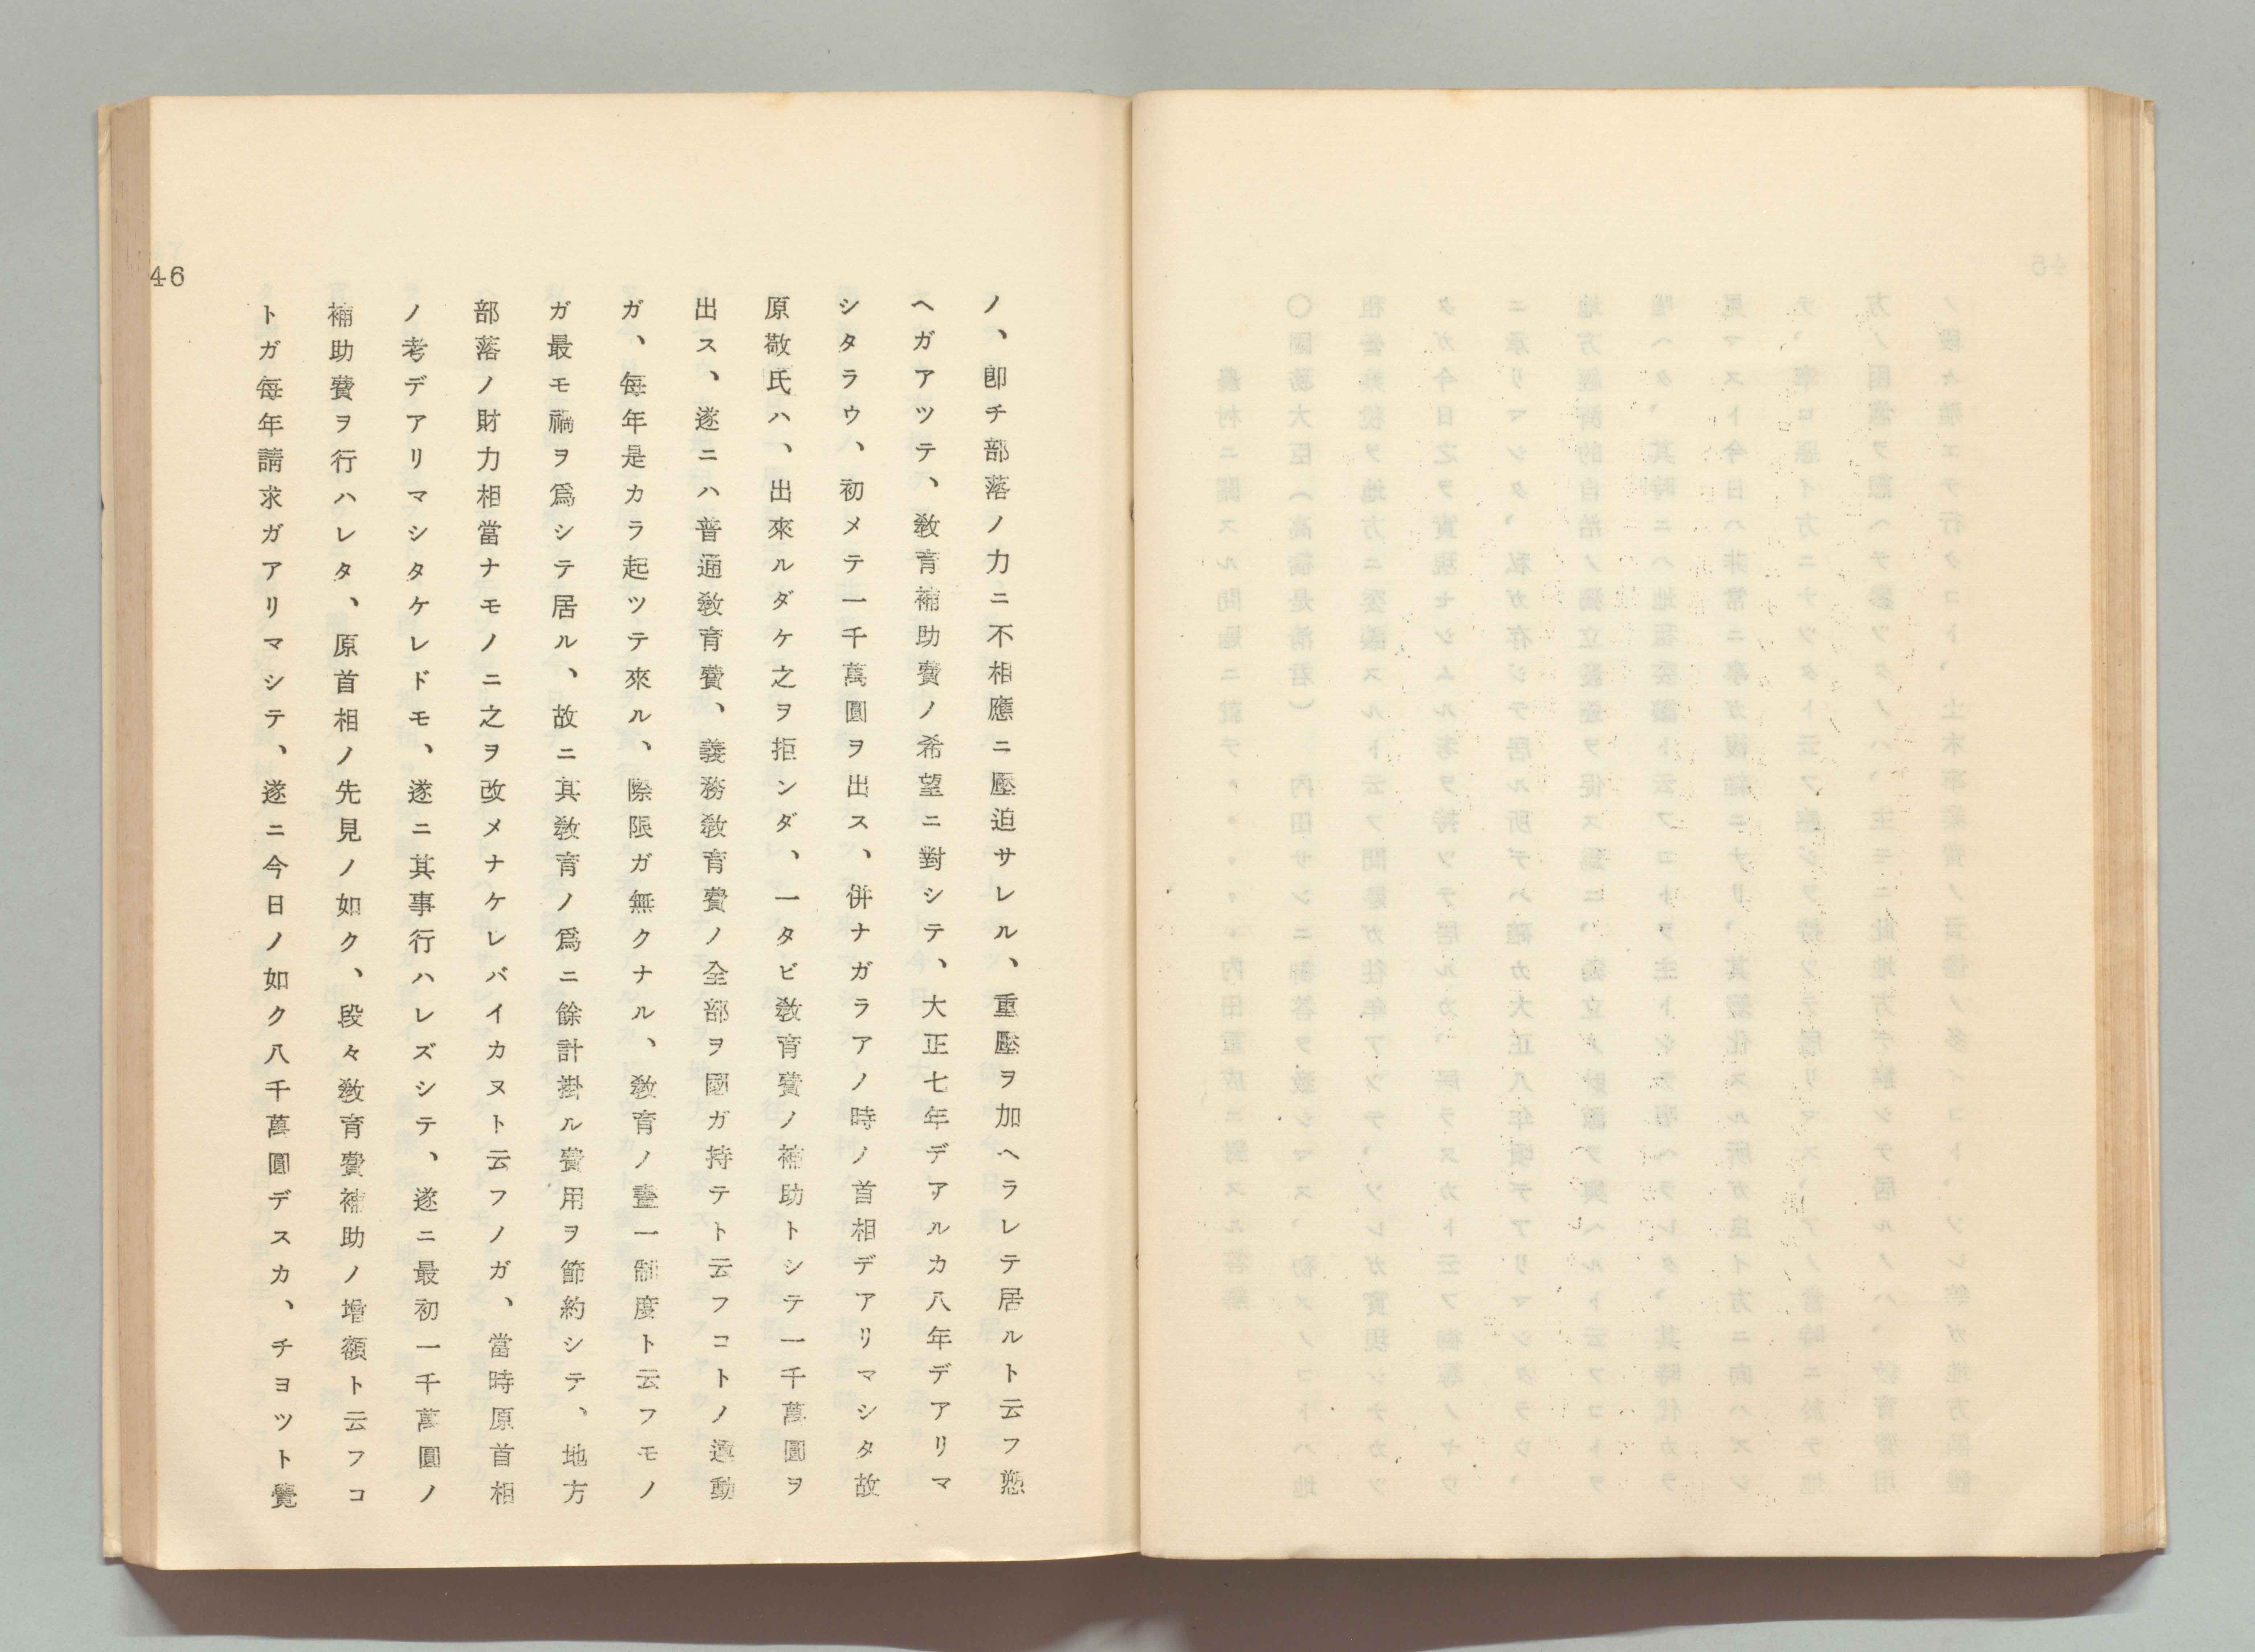 ノ、卽チ部落ノ力ニ不相應ニ壓迫サレル、重壓ヲ加ヘラレテ居ルト云フ愬
ヘガアツテ、敎育補助費ノ希望ニ對シテ、大正七年デアルカ八年デアリマ
シタラウ、初メテ一千萬圓ヲ出ス、併ナガラアノ時ノ首相デアリマシタ故
原敬氏ハ、出來ルダケ之ヲ拒ンダ、一タビ敎育費ノ補助トシテ一千萬圓ヲ
出ス、遂ニハ普通敎育費、義務敎育費ノ全部ヲ國ガ持テト云フコトノ運動
ガ、每年是カラ起ツテ來ル、際限ガ無クナル、敎育ノ畫一制度ト云フモノ
ガ最モ禍ヲ爲シテ居ル、故ニ其敎育ノ爲ニ餘計掛ル費用ヲ節約シテ、地方
部落ノ財力相當ナモノニ之ヲ改メナケレバイカヌト云フノガ、當時原首相
ノ考デアリマシタケレドモ、遂ニ其事行ハレズシテ、遂ニ最初一千萬圓ノ
補助費ヲ行ハレタ、原首相ノ先見ノ如ク、段々敎育費補助ノ增額ト云フコ
トガ每年請求ガアリマシテ、遂ニ今日ノ如ク八千萬圓デスカ、チヨツト覺
46